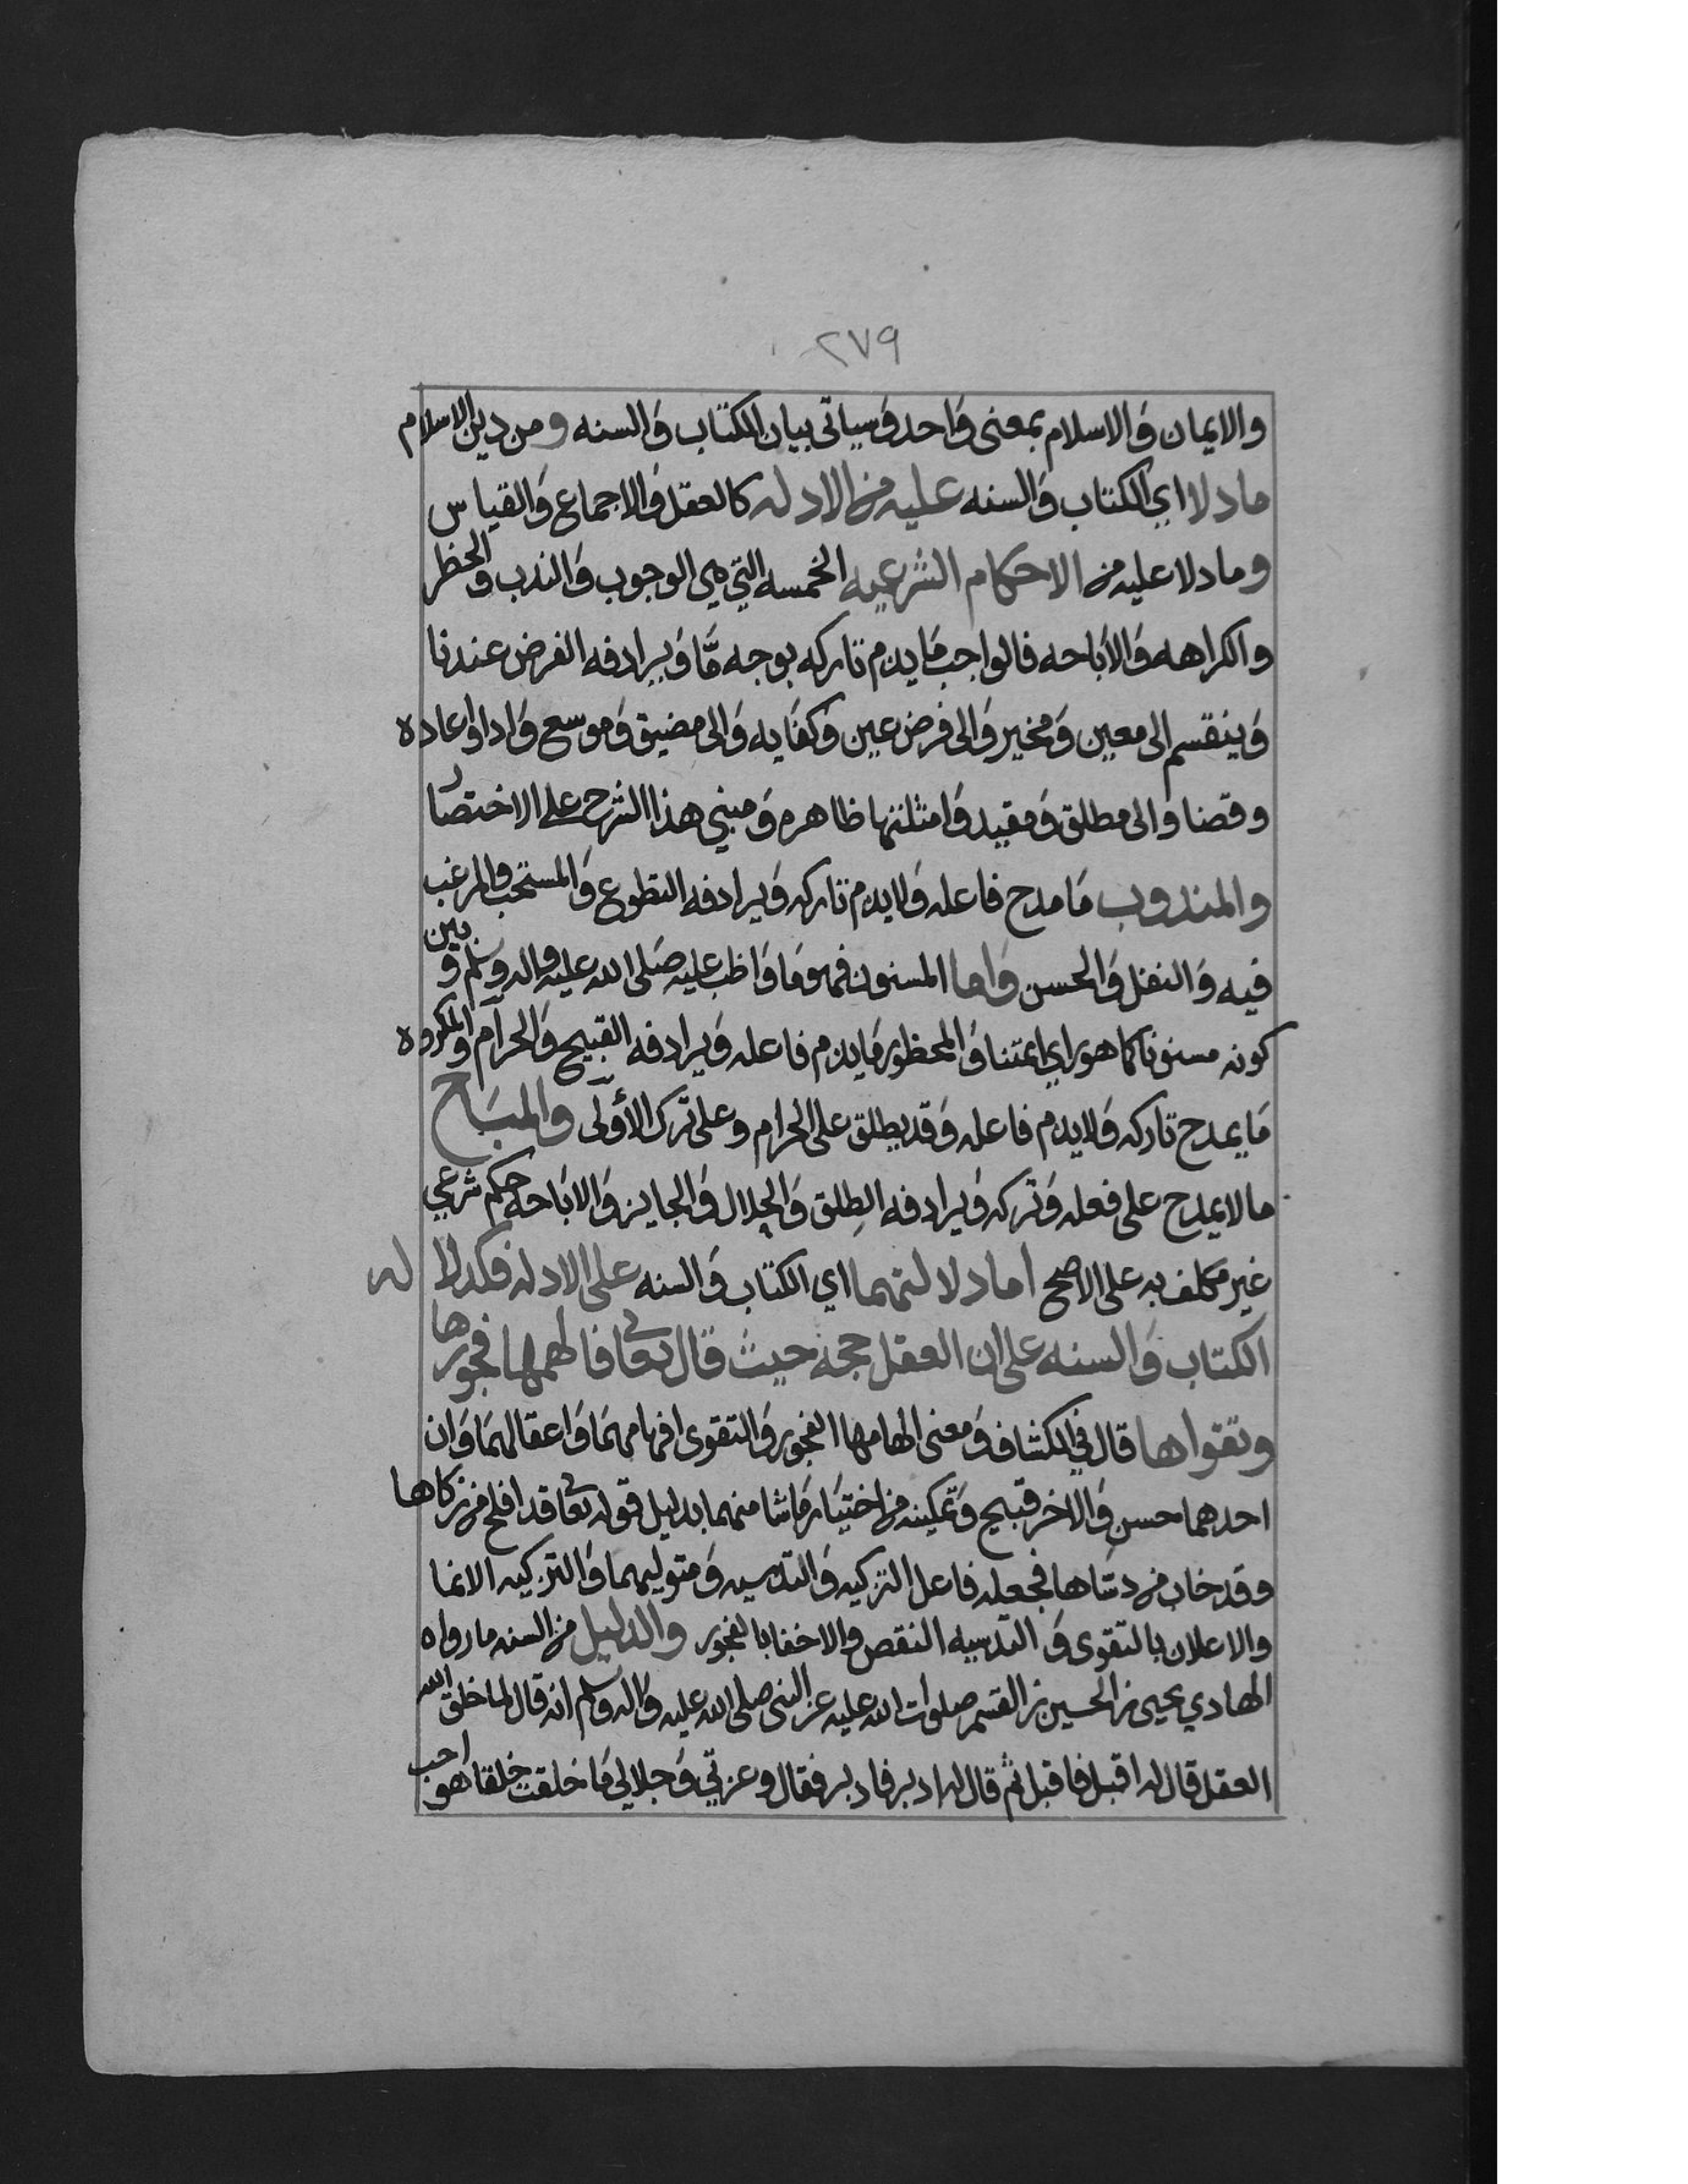 ٢٧٩
والايمان والاسلام بمعنى واحد وسياتى بيان الكتاب والسنه ومن دين الاسلام
ما دلا اي الكتاب والسنه عليه من الادله كالعقل والاجماع والقياس
وما دلا عليه من الاحكام الشرعيه الخمسه التي هي الوجوب والندب والحظر
والكراهه والاباحه فالواجب ما يذم تاركه بوجه مّا ويرادفه الفرض عندنا
وينقسم الى معين ومخير والى فرض عين وكفايه والى مضيق وموسع وادا واعاده
وقضا والى مطلق ومقيد وامثلتها ظاهره ومبني هذا الشرح على الاختصار
والمندوب ما مدح فاعله ولا يذم تاركه ويرادفه التطوع والمستحب والمرغب
فيه والنفل والحسن واما المسنون فهو ما واظب عليه صلى الله عليه واله وسلم وبين
كونه مسنونا كما هو راي ايمتنا والمحظور ما يذم فاعله ويرادفه القبيح والحرام والمكروه
ما يمدح تاركه ولا يذم فاعله وقد يطلق على الحرام وعلى ترك الأولى والمباح
ما لا يمدح على فعله وتركه ويرادفه الطلق والحلال والجايز والاباحه حكم شرعي
غير مكلف به على الاصح اما دلالتهما اي الكتاب والسنه على الادله فكدلاله
الكتاب والسنه على ان العقل حجه حيث قال تعالى فالهمها فجورها
وتقواها قال في الكشاف ومعنى الهامها الفجور والتقوى افهامهما واعقالهما وان
احدهما حسن والاخر قبيح وتمكينه من اختيار ما شا منهما بدليل قوله تعالى قد افلح من زكاها
وقد خاب من دساها فجعله فاعل التزكيه والتدسيه ومتوليهما والتزكيه الانما
والاعلان بالتقوى والتدسيه النقص والاخفا بالفجور والدليل من السنه ما رواه
الهادي يحيى بن الحسين بن القسم صلوات الله عليه عن النبي صلى الله عليه واله وسلم انه قال لما خلق الله
العقل قال له اقبل فاقبل ثم قال له ادبر فادبر فقال وعزتي وجلالي ما خلقت خلقا هو احب